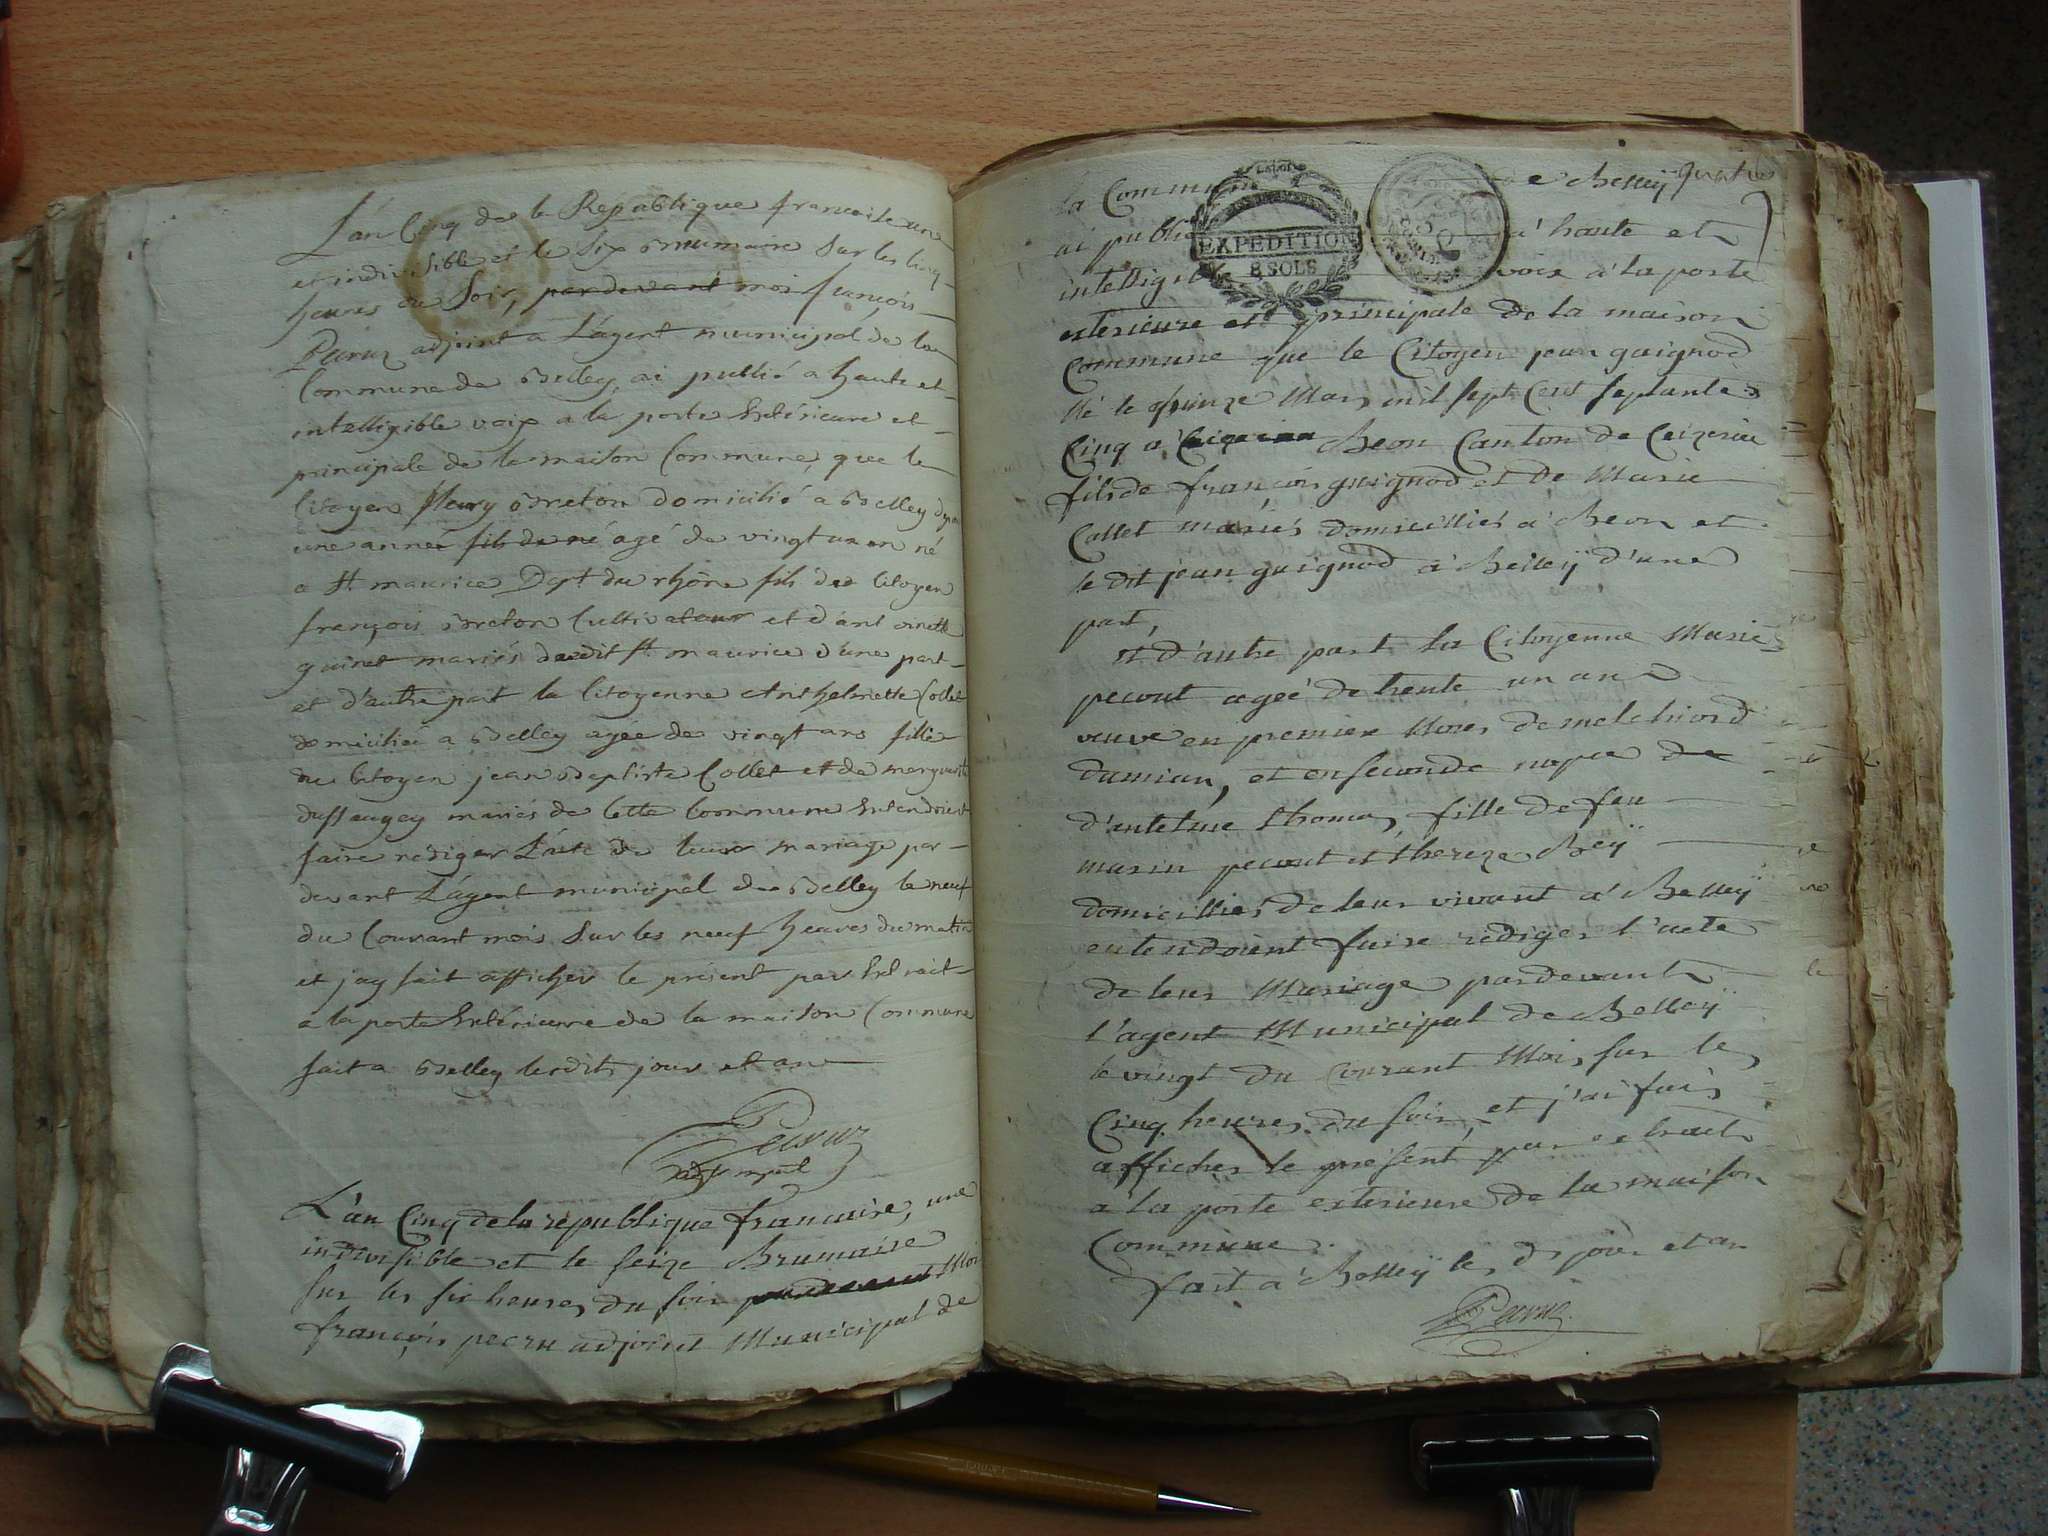 L'an Cinq de la République francoise une
et indivisible et le six Brumaire sur les cinq
heures du soir, pardevant moi françois
Pecruz adjoint a L'agent municipal de la
Commune de Belley, ai publié a haute et
intelligible voix a la porte Extérieure et
principale de la maison Commune, que le
Citoyen fleury Breton domicilié a Belley depuis
une année fils de né agé de vingt un an né
a St. maurice Dept. du rhône fils de Citoyen
françois Breton Cultivateur et d'ant oinette
guinet mariés dudit St. maurice d'une part
et d'autre part la Citoyenne Anthelmette Collet
domiciliée a Belley agée de vingt ans fille
du Citoyen jean Baptiste Collet et de marguerite
mariés de Cette Commune Entendoient
faire rediger L'acte de leur mariage par
devant L'agent municipal de Belley le neuf
du Courant mois sur les neuf heures du matin
et jay fait afficher le présent par Extrait
a la porte Extérieure de la maison Commune
fait a Belley lesdits jour et an
Pecruz
adjt mpal
L'an Cinq de la république francaise, une
indivisible et le seize Brumaire
Sur les six heures du soir pardevant Moi
françois pecru adjoint Municipal de
la Commune de Belleÿ quatre
ai publié à haute et
intelligible voix à la porte
exterieure et principale de la maison
Commune que le Citoyen jean guignod
Né le quinze Mars mil sept Cent septante
Cinq a Beon Canton de Ceizerieu
fils de françois guignod et de Marie
Collet mariés domicilliés à Beon et
le dit jean guignod à Belleÿ d'une
part,
et d'autre part la Citoyenne Marie
pecout agée de trente un ans
veuve en premiere Noces de melchiord
damian, et en seconde nopce de
d'antelme thomas, fille de feu
marin pecout et thereze Reÿ
domicilliés de leur vivant à Belleÿ
entendoient faire rédiger l'acte
de leur Mariage pardevant
l'agent Municipal de Belleÿ
le vingt du Courant Mois sur les
Cinq heures du soir, et j'ai fais
afficher le présent par extrait
a la porte exterieure de la maison
Commune.
fait a Belleÿ les ds jour et an
Pecruz
EXPEDITION
8 SOLS